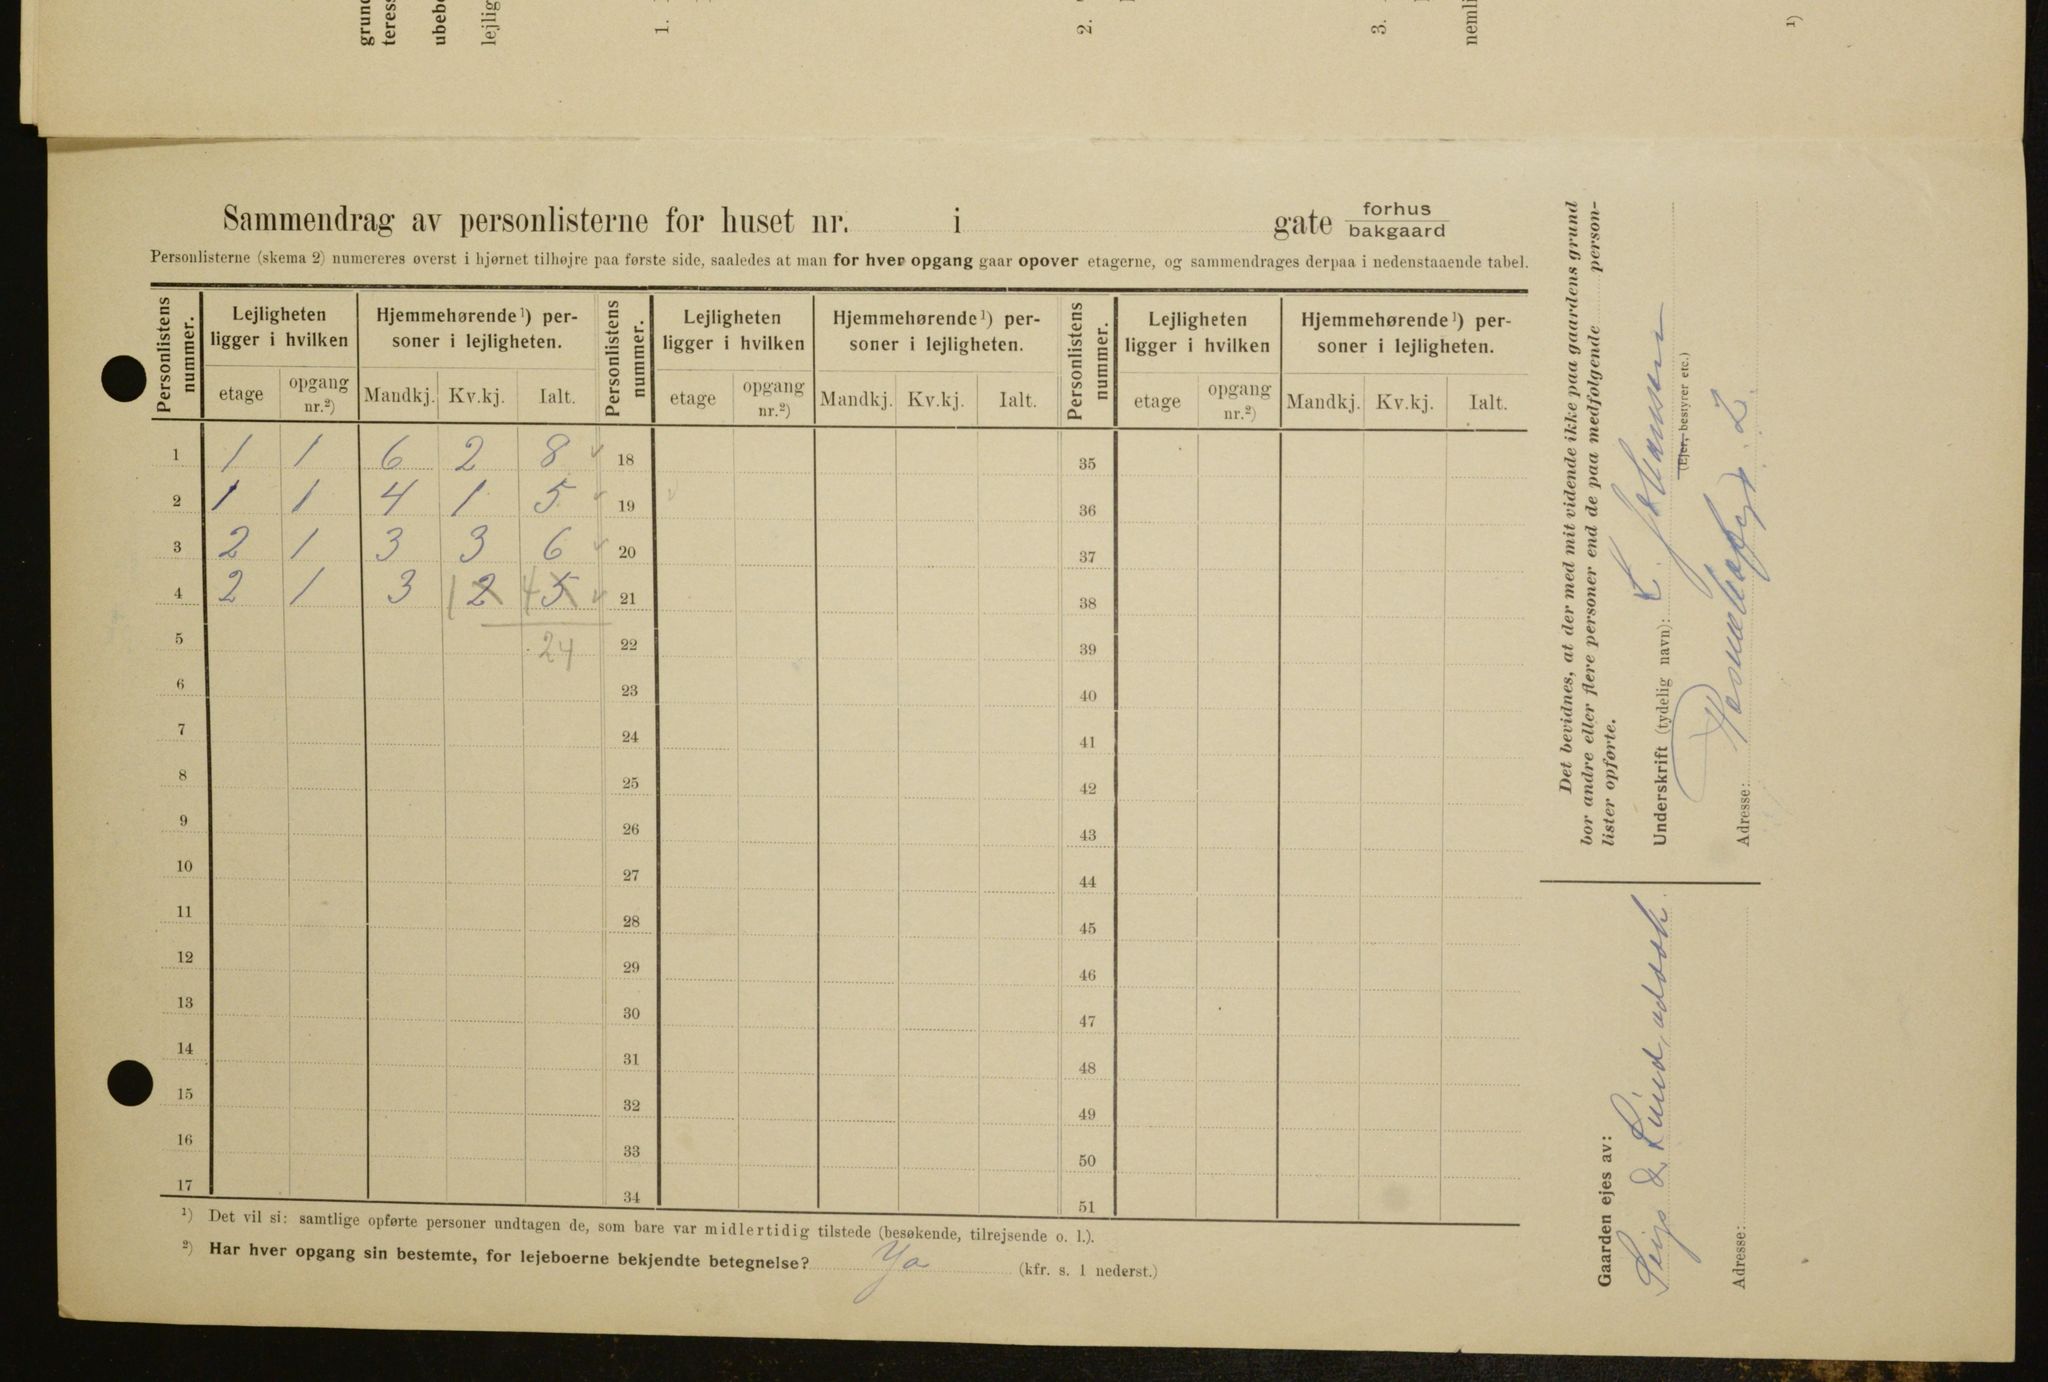 grund
teress
ubebo
lejlig
1.
2.
3.
nemli
1)
Sammendrag av personlisterne for huset nr. i gate forhus
bakgaard
Personlisterne (skema 2) numereres øverst i hjørnet tilhøjre paa første side, saaledes at man for hver opgang gaar opover etagerne, og sammendrages derpaa i nedenstaaende tabel.
Personlistens nummer. Lejligheten ligger i hvilken Hjemmehørende 1) personer i lejligheten. Personlistens nummer. Lejligheten ligger i hvilken Hjemmehørende 1) personer i lejligheten. Personlistens nummer. Lejligheten ligger i hvilken Hjemmehørende 1) personer i lejligheten.
etage opgang nr.2) Mandkj. Kv.kj. Ialt. etage opgang nr.2) Mandkj. Kv.kj. Ialt. etage opgang nr.2) Mandkj. Kv.kj. Ialt.
1 1 1 6 2 8 18 35
2 1 1 4 1 5 19 36
3 2 1 3 3 6 20 37
4 2 1 3 1 2 4 5 21 38
5 24 22 39
6 23 40
7 24 41
8 25 42
9 26 43
10 27 44
11 28 45
12 29 46
13 30 47
14 31 48
15 32 49
16 33 50
17 34 51
1) Det vil si: samtlige opførte personer undtagen de, som bare var midlertidig tilstede (besøkende, tilrejsende o. l.).
2) Har hver opgang sin bestemte, for lejeboerne bekjendte betegnelse? Ja (kfr. s. 1 nederst.)
Det bevidnes, at der med mit vidende ikke paa gaardens grund
bor andre eller flere personer end de paa medfølgende person-
lister opførte.
Underskrift (tydelig navn): K. Johansen
(Ejer, bestyrer etc.)
Adresse: 2.
Gaarden ejes av:
& Lund,
Adresse: